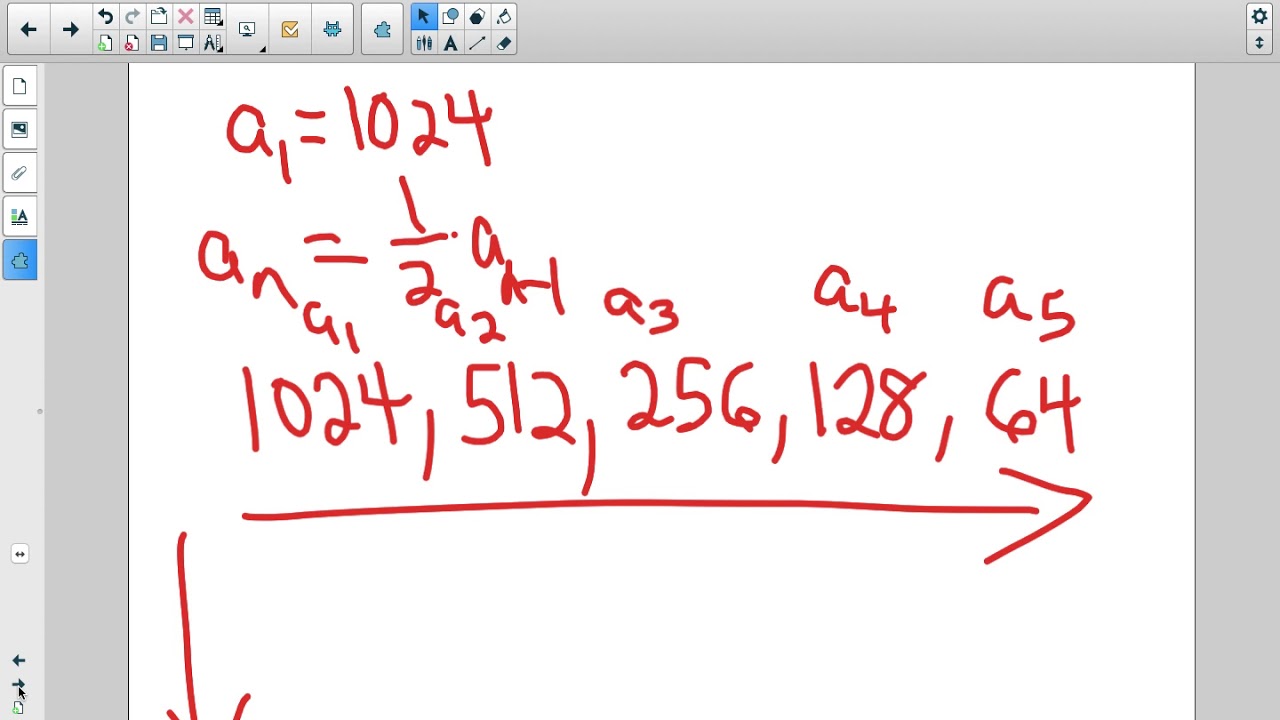 a₁ = 1024
aₙ = 1/2 · aₙ₋₁
a₁ a₂ a₃ a₄ a₅
1024, 512, 256, 128, 64